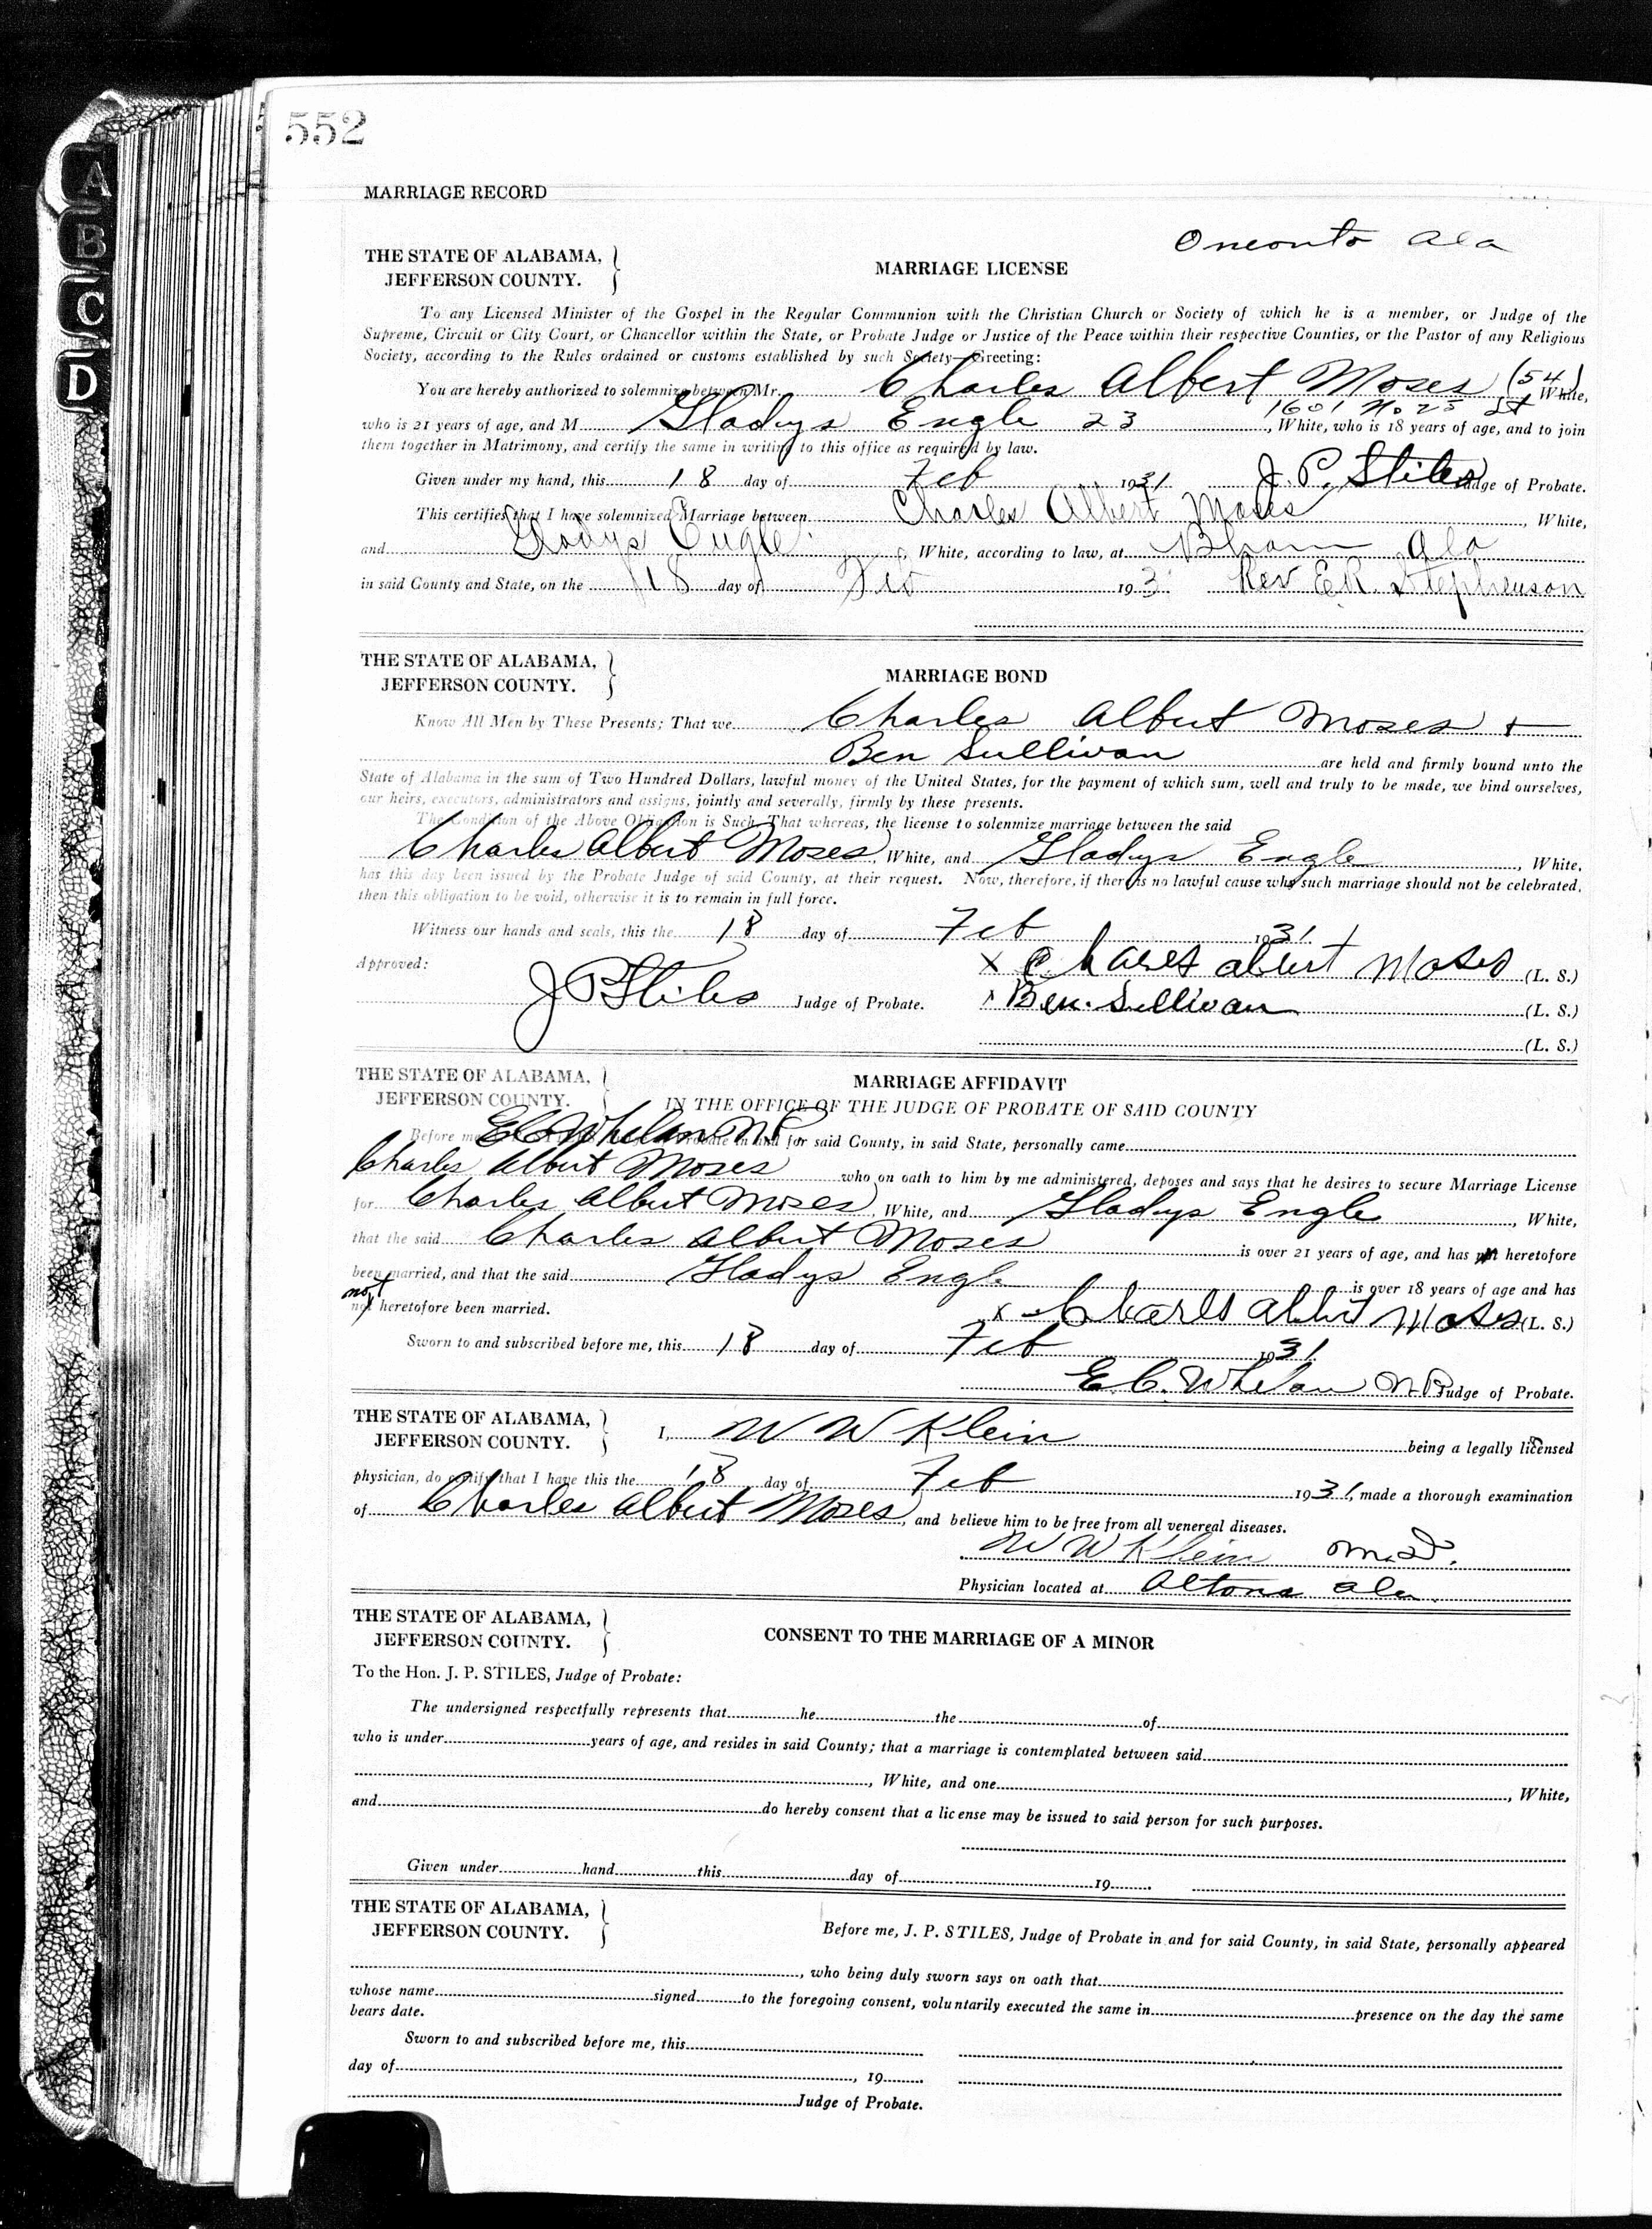 552
A
B
C
D
MARRIAGE RECORD
Oneonta Ala
THE STATE OF ALABAMA,
JEFFERSON COUNTY.
MARRIAGE LICENSE
To any Licensed Minister of the Gospel in the Regular Communion with the Christian Church or Society of which he is a member, or Judge of the
Supreme, Circuit or City Court, or Chancellor within the State, or Probate Judge or Justice of the Peace within their respective Counties, or the Pastor of any Religious
Society, according to the Rules ordained or customs established by such Society—Greeting:
You are hereby authorized to solemnize between Mr. Charles Albert Moses (54) White,
1601 No 25 St
who is 21 years of age, and M Gladys Engle 23, White, who is 18 years of age, and to join
them together in Matrimony, and certify the same in writing to this office as required by law.
Given under my hand, this 18 day of Feb 1931 J. P. Stiles Judge of Probate.
This certifies that I have solemnized Marriage between Charles Albert Moses, White,
and Gladys Engle, White, according to law, at Bham Ala
in said County and State, on the 18 day of Feb 193 Rev E.R. Stephenson
THE STATE OF ALABAMA,
JEFFERSON COUNTY.
MARRIAGE BOND
Know All Men by These Presents; That we Charles Albert Moses +
Ben Sullivan are held and firmly bound unto the
State of Alabama in the sum of Two Hundred Dollars, lawful money of the United States, for the payment of which sum, well and truly to be made, we bind ourselves,
our heirs, executors, administrators and assigns, jointly and severally, firmly by these presents.
The Condition of the Above Obligation is Such, That whereas, the license to solenmize marriage between the said
Charles Albert Moses, White, and Gladys Engle, White,
has this day been issued by the Probate Judge of said County, at their request. Now, therefore, if there is no lawful cause why such marriage should not be celebrated,
then this obligation to be void, otherwise it is to remain in full force.
Witness our hands and seals, this the 18 day of Feb 1931.
Approved: X Chares albert Moses (L. S.)
J P Stiles Judge of Probate. x Ben. Sullivan (L. S.)
(L. S.)
THE STATE OF ALABAMA,
JEFFERSON COUNTY.
MARRIAGE AFFIDAVIT
IN THE OFFICE OF THE JUDGE OF PROBATE OF SAID COUNTY
Before me E C Whelan N P in and for said County, in said State, personally came
Charles Albert Moses who on oath to him by me administered, deposes and says that he desires to secure Marriage License
for Charles Albert Moses, White, and Gladys Engle, White,
that the said Charles Albert Moses is over 21 years of age, and has not heretofore
been married, and that the said Gladys Engle is over 18 years of age and has
not
not heretofore been married. x Charls Albert Moses (L. S.)
Sworn to and subscribed before me, this 18 day of Feb 1931.
E. C. Whelan N. P. Judge of Probate.
THE STATE OF ALABAMA,
JEFFERSON COUNTY.
I, W W Klein being a legally licensed
physician, do certify that I have this the 18 day of Feb 1931, made a thorough examination
of Charles Albert Moses, and believe him to be free from all venereal diseases.
W W Klein M.D.
Physician located at Altona Ala
THE STATE OF ALABAMA,
JEFFERSON COUNTY.
CONSENT TO THE MARRIAGE OF A MINOR
To the Hon. J. P. STILES, Judge of Probate:
The undersigned respectfully represents that he the of
who is under years of age, and resides in said County; that a marriage is contemplated between said
, White, and one , White,
and do hereby consent that a license may be issued to said person for such purposes.
Given under hand this day of 19
THE STATE OF ALABAMA,
JEFFERSON COUNTY.
Before me, J. P. STILES, Judge of Probate in and for said County, in said State, personally appeared
, who being duly sworn says on oath that
whose name signed to the foregoing consent, voluntarily executed the same in presence on the day the same
bears date.
Sworn to and subscribed before me, this
day of , 19
Judge of Probate.